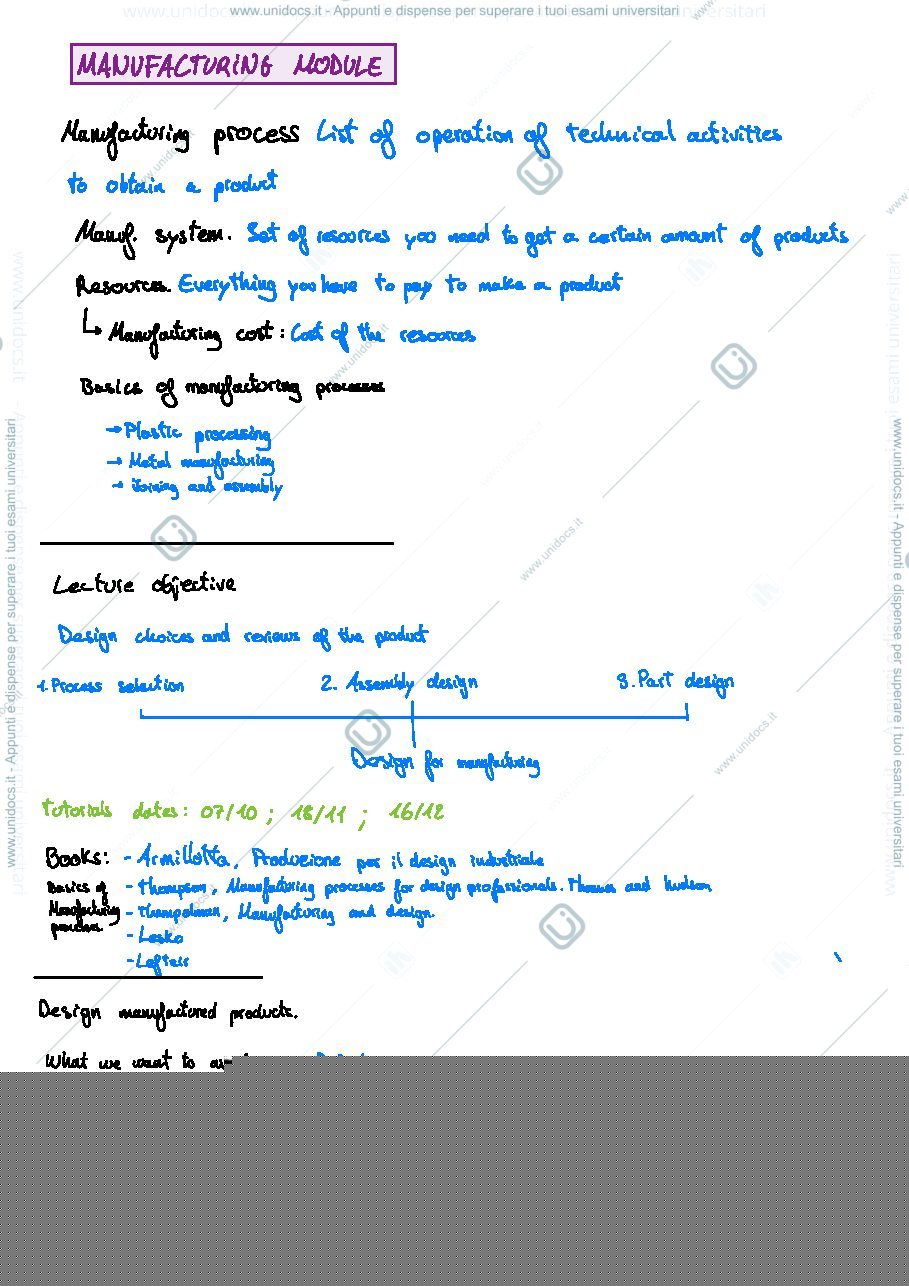 www.unidocs.it - Appunti e dispense per superare i tuoi esami universitari
MANUFACTURING MODULE
Manufacturing process List of operation of technical activities
to obtain a product
Manuf. system. Set of resources you need to get a certain amount of products
Resources. Everything you have to pay to make a product
↳ Manufacturing cost: Cost of the resources
Basics of manufacturing processes
→ Plastic processing
→ Metal manufacturing
→ Joining and assembly
Lecture objective
Design choices and reviews of the product
1. Process selection 2. Assembly design 3. Part design
Design for manufacturing
Tutorials dates: 07/10 ; 18/11 ; 16/12
Books: - Armillotta, Produzione per il design industriale
Basics of Manufacturing processes
- Thompson, Manufacturing processes for design professionals. Thomas and Hudson
- Thompolman, Manufacturing and design.
- Lesko
- Lefteri
Design manufactured products.
What we want to
www.unidocs.it - Appunti e dispense per superare i tuoi esami universitari
www.unidocs.it - Appunti e dispense per superare i tuoi esami universitari
www.unidocs.it
www.unidocs.it